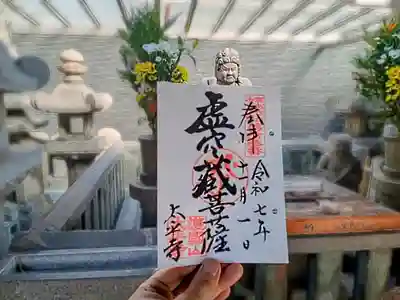 奉拝
令和七年
十一月一日
虚空蔵菩薩
太平寺